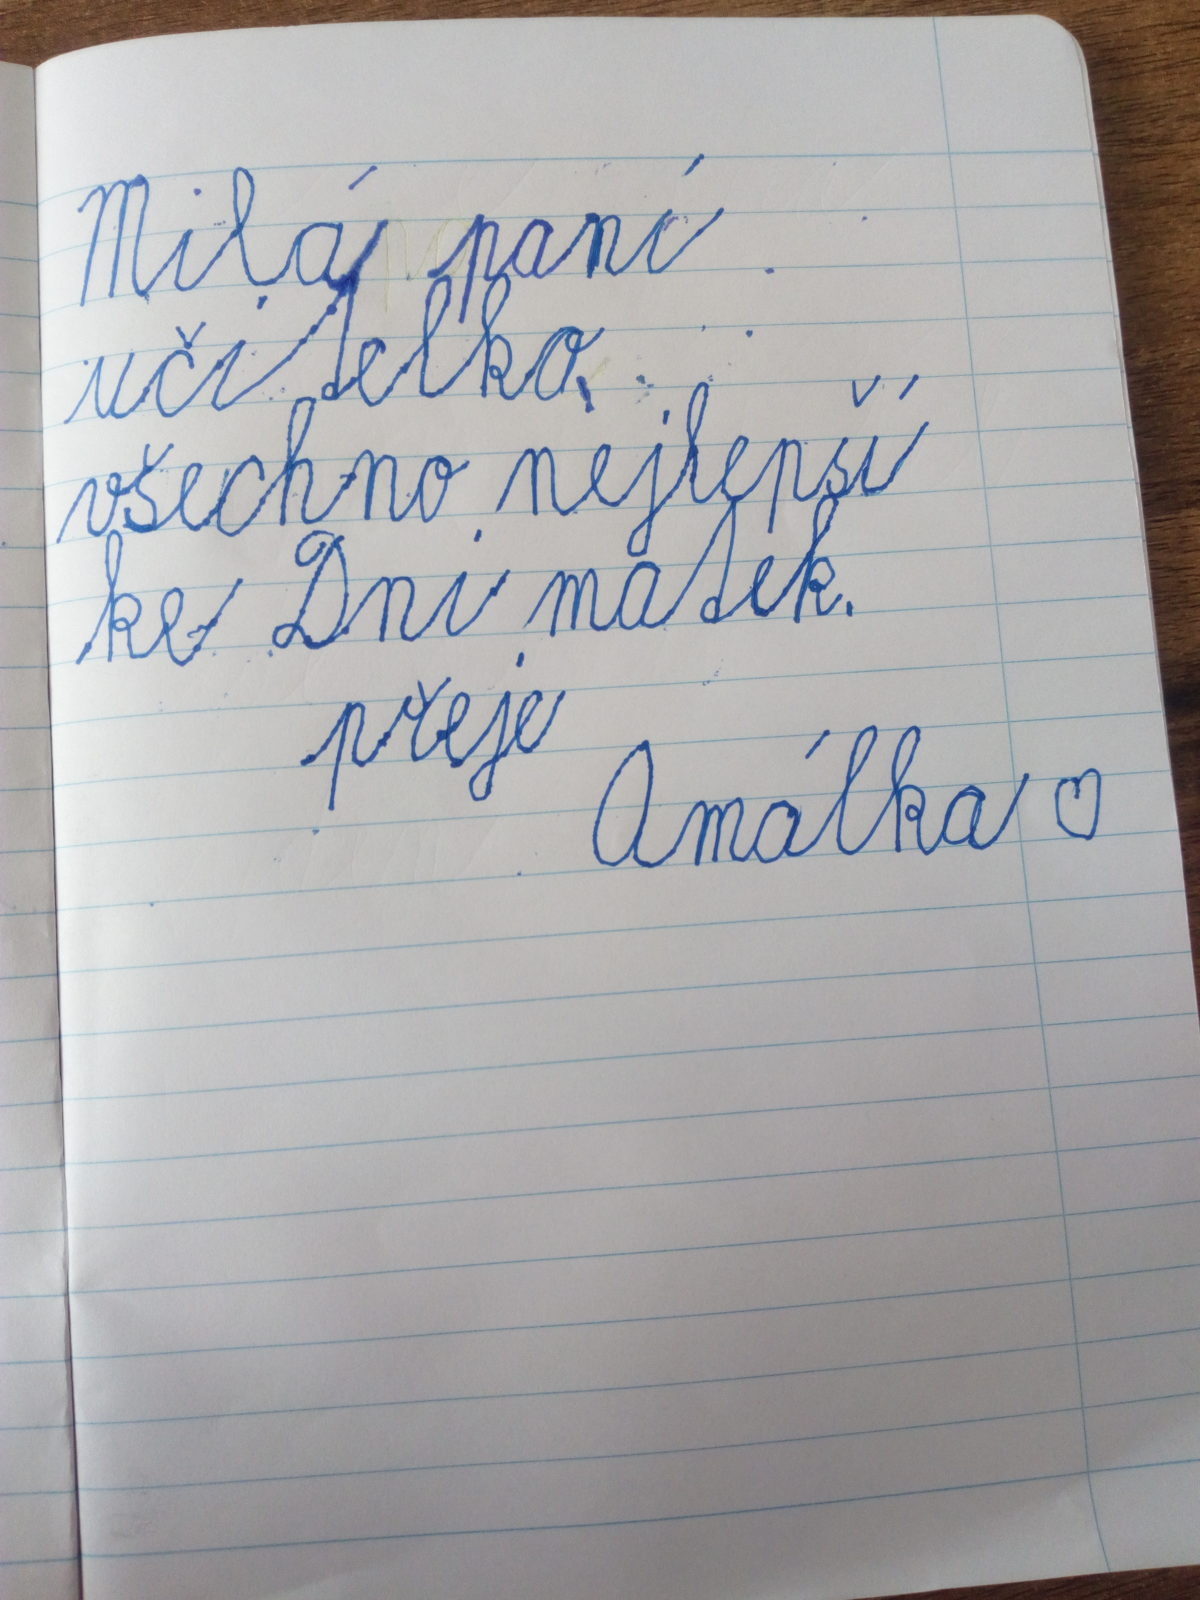 Milá paní
učitelko,
všechno nejlepší
ke Dni matek.
přeje
Amálka ♡